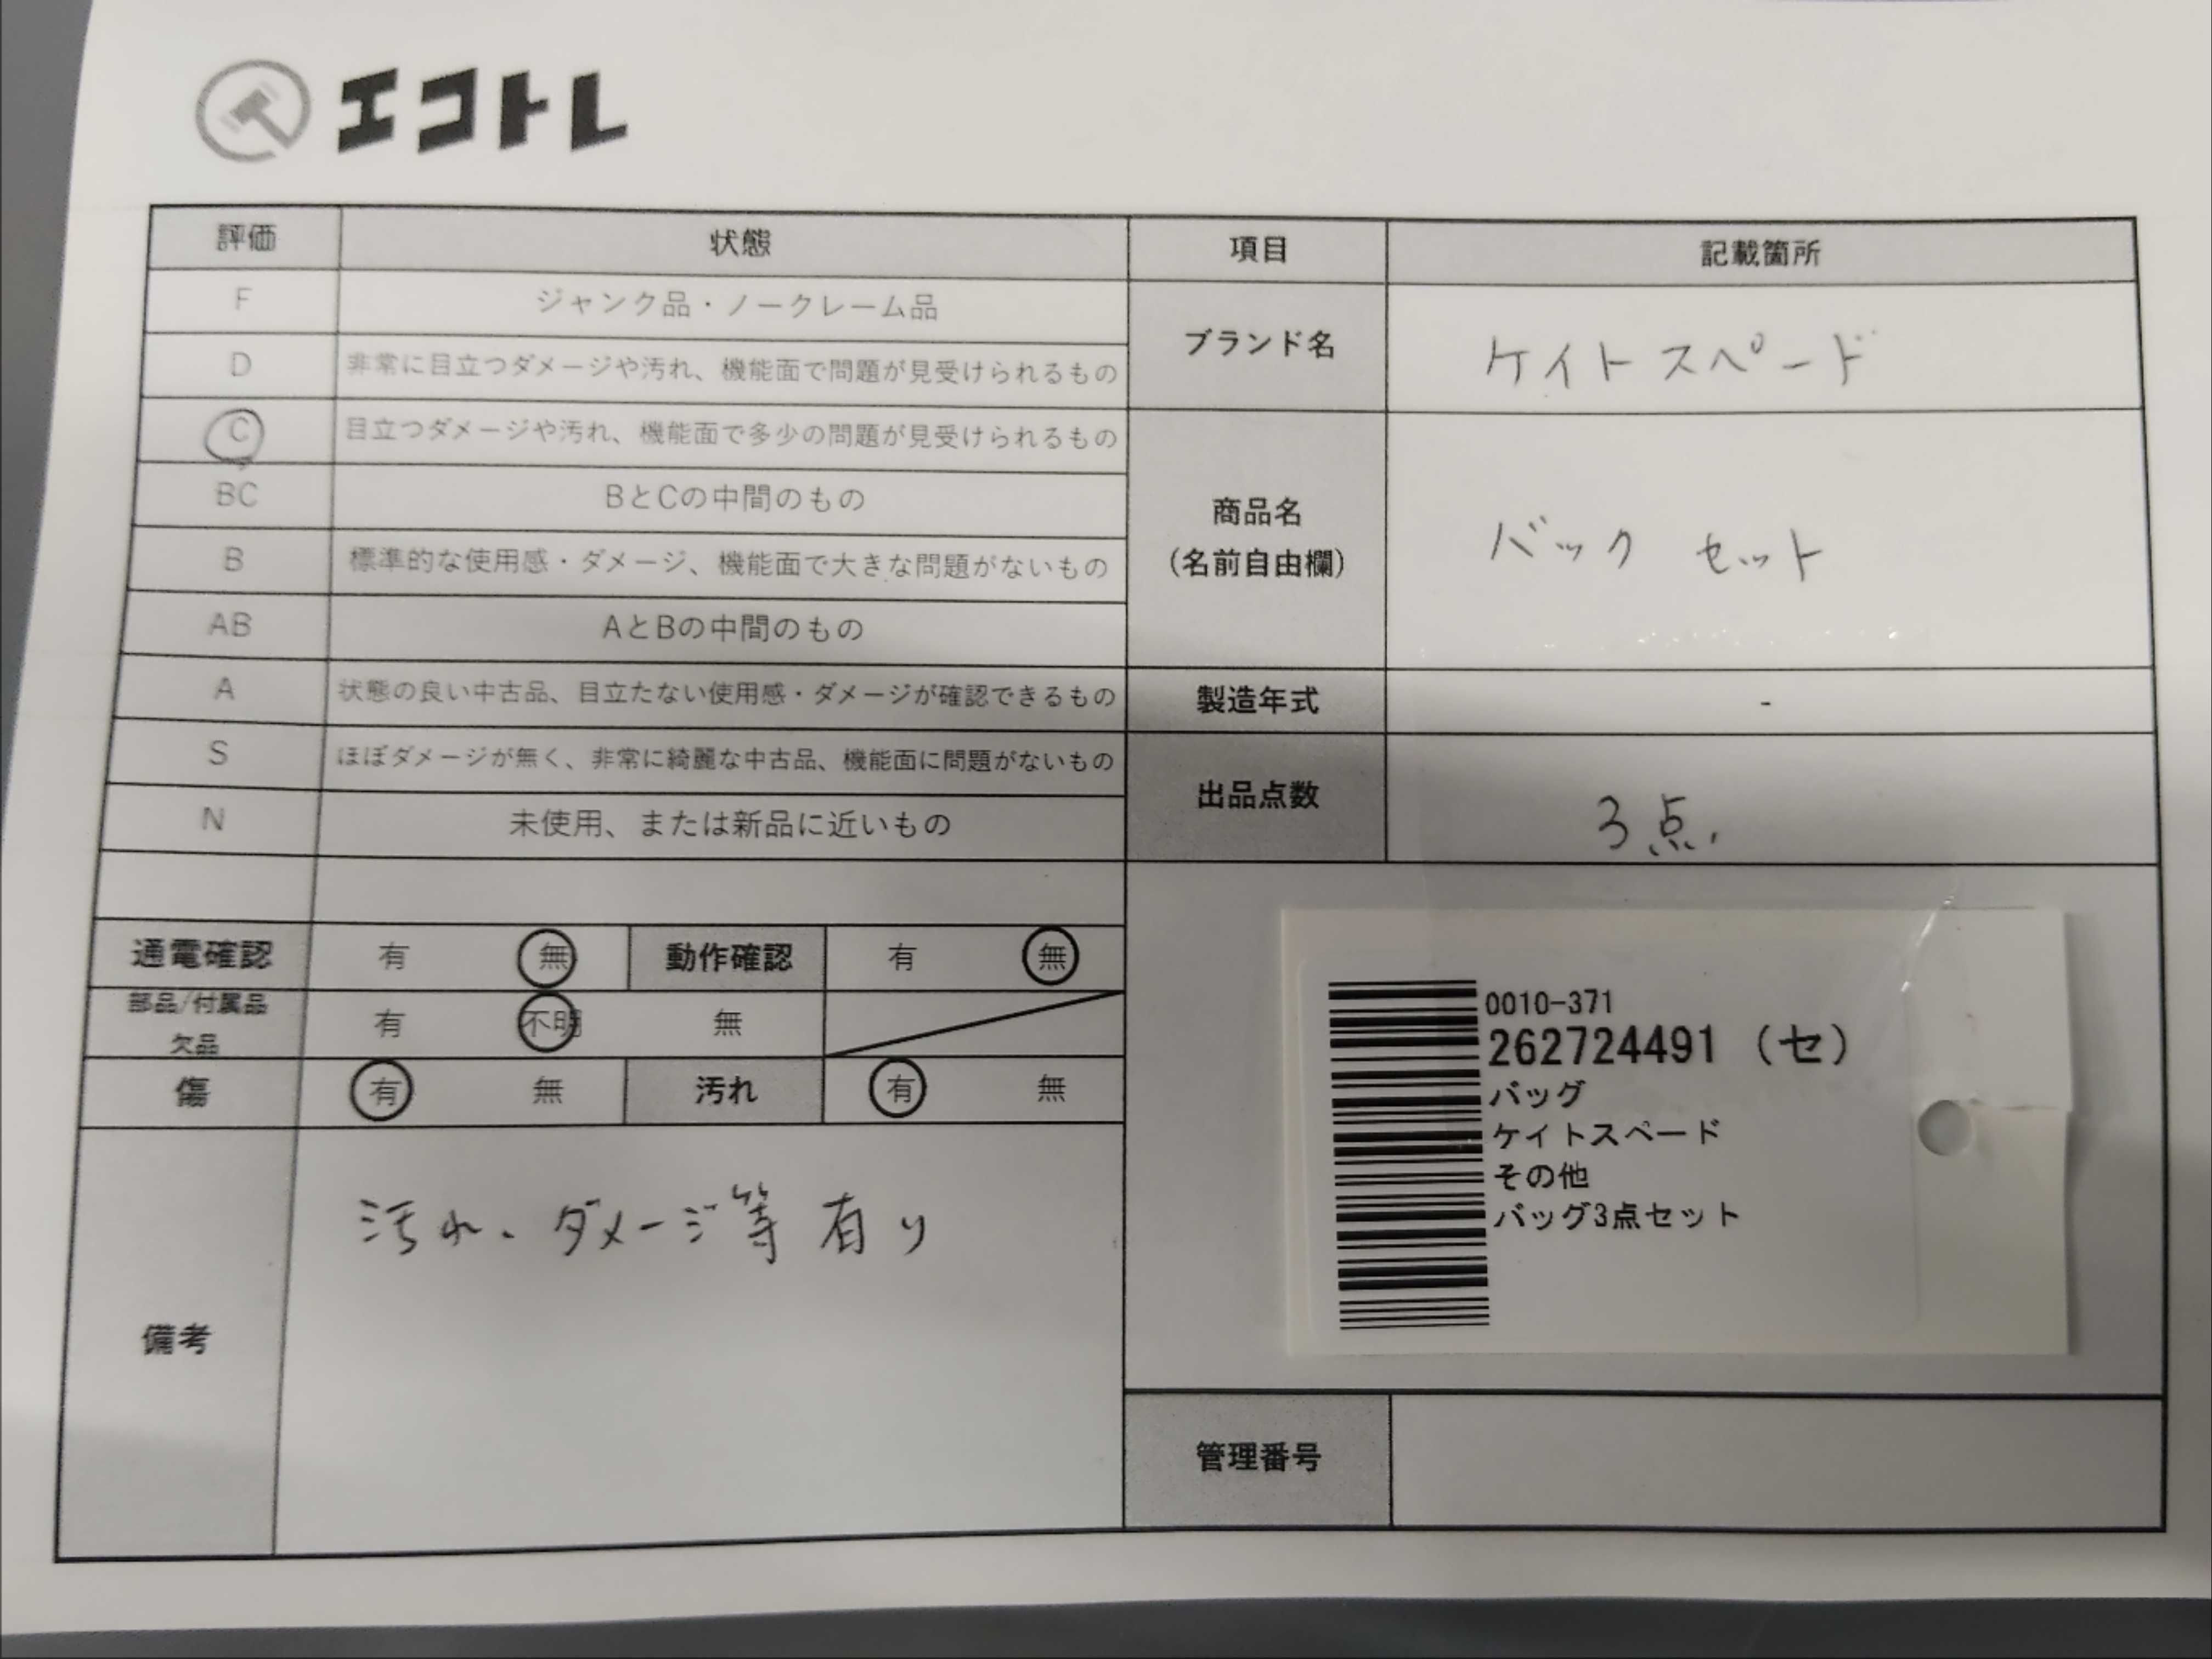 エコトレ
評価 状態 項目 記載箇所
F ジャンク品・ノークレーム品
D 非常に目立つダメージや汚れ、機能面で問題が見受けられるもの
ブランド名 ケイトスペード
C 目立つダメージや汚れ、機能面で多少の問題が見受けられるもの
BC BとCの中間のもの
B 標準的な使用感・ダメージ、機能面で大きな問題がないもの
商品名
(名前自由欄)
バック セット
AB AとBの中間のもの
A 状態の良い中古品、目立たない使用感・ダメージが確認できるもの
製造年式 -
S ほぼダメージが無く、非常に綺麗な中古品、機能面に問題がないもの
N 未使用、または新品に近いもの
出品点数 3点.
通電確認 有 無 動作確認 有 無
部品/付属品
欠品
有 不明 無
傷 有 無 汚れ 有 無
備考
汚れ、ダメージ等 有り
0010-371
262724491 (セ)
バッグ
ケイトスペード
その他
バッグ3点セット
管理番号